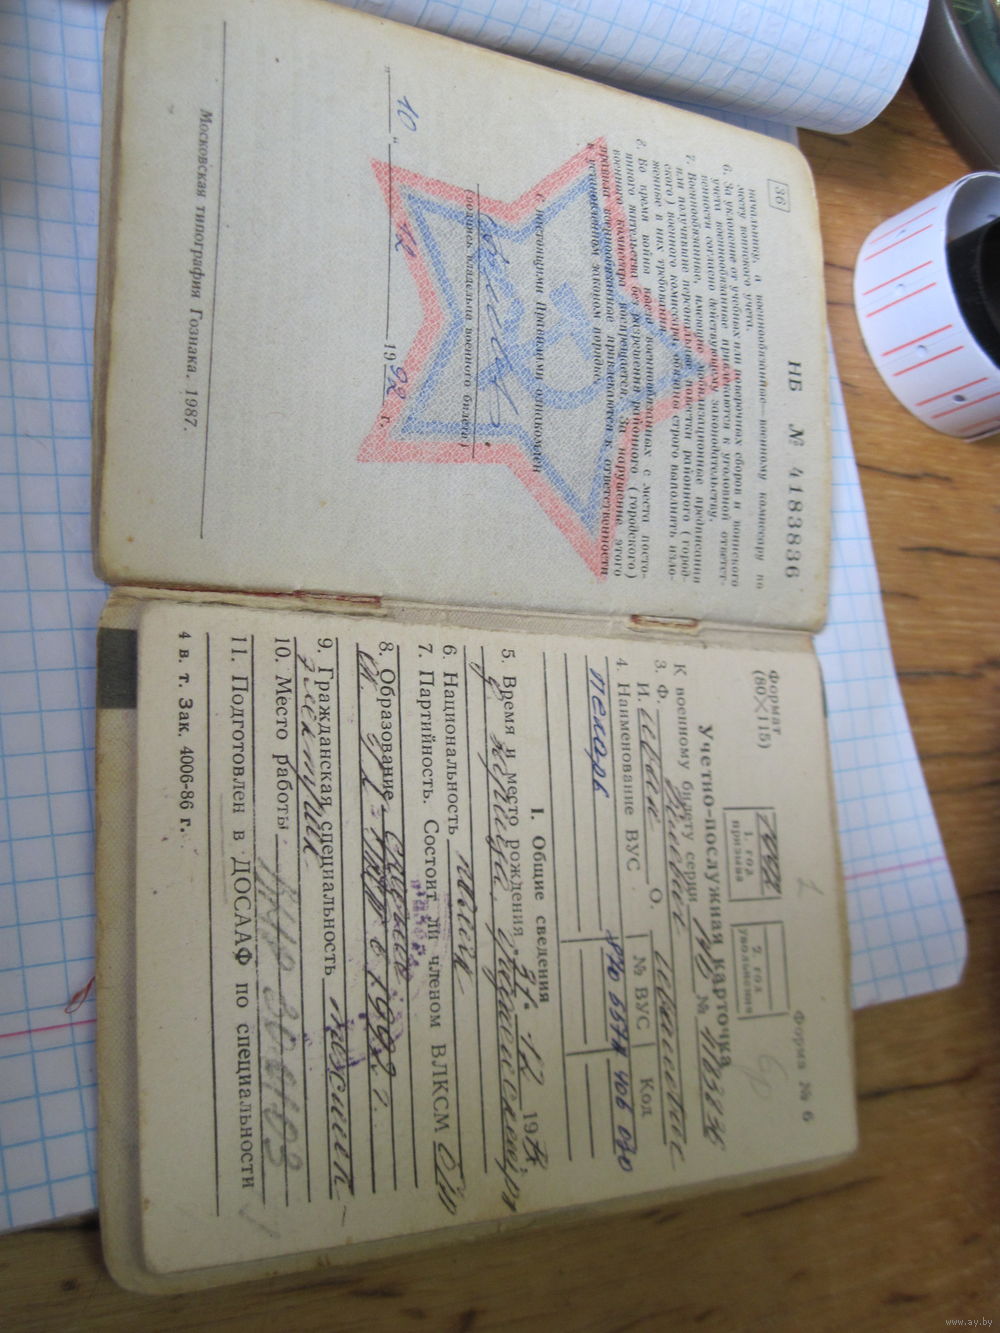 36
НБ № 4183836
начальнику, а военнообязанные—военному комиссару по
месту воинского учета.
6. За уклонение от учебных или поверочных сборов и воинского
учета военнообязанные привлекаются к уголовной ответст-
венности согласно действующему законодательству.
7. Военнообязанные, имеющие мобилизационные предписания
или получившие персональные повестки районного (город-
ского) военного комиссара, обязаны строго выполнить изло-
женные в них требования.
8. Во время войны выезд военнообязанных с места посто-
янного жительства без разрешения районного (городского)
военного комиссара воспрещается. За нарушение этого
правила военнообязанные привлекаются к ответственности
в установленном законом порядке.
С настоящими Правилами ознакомлен
(подпись владельца военного билета)
„ 10 “ 12 1992 г.
Московская типография Гознака. 1987.
Форма № 6
Формат
(80×115)
1. год
призыва
2. год
увольнения
Учетно-послужная карточка
К военному билету серии НБ № 4183836
3. Ф.
И. О.
4. Наименование ВУС № ВУС Код
пекарь
I. Общие сведения
5. Время и место рождения 31. 12 19
6. Национальность
7. Партийность. Состоит ли членом ВЛКСМ
8. Образование среднее
1992 г.
9. Гражданская специальность
электрик
10. Место работы
11. Подготовлен в ДОСААФ по специальности
4 в. т. Зак. 4006-86 г.
www.ay.by